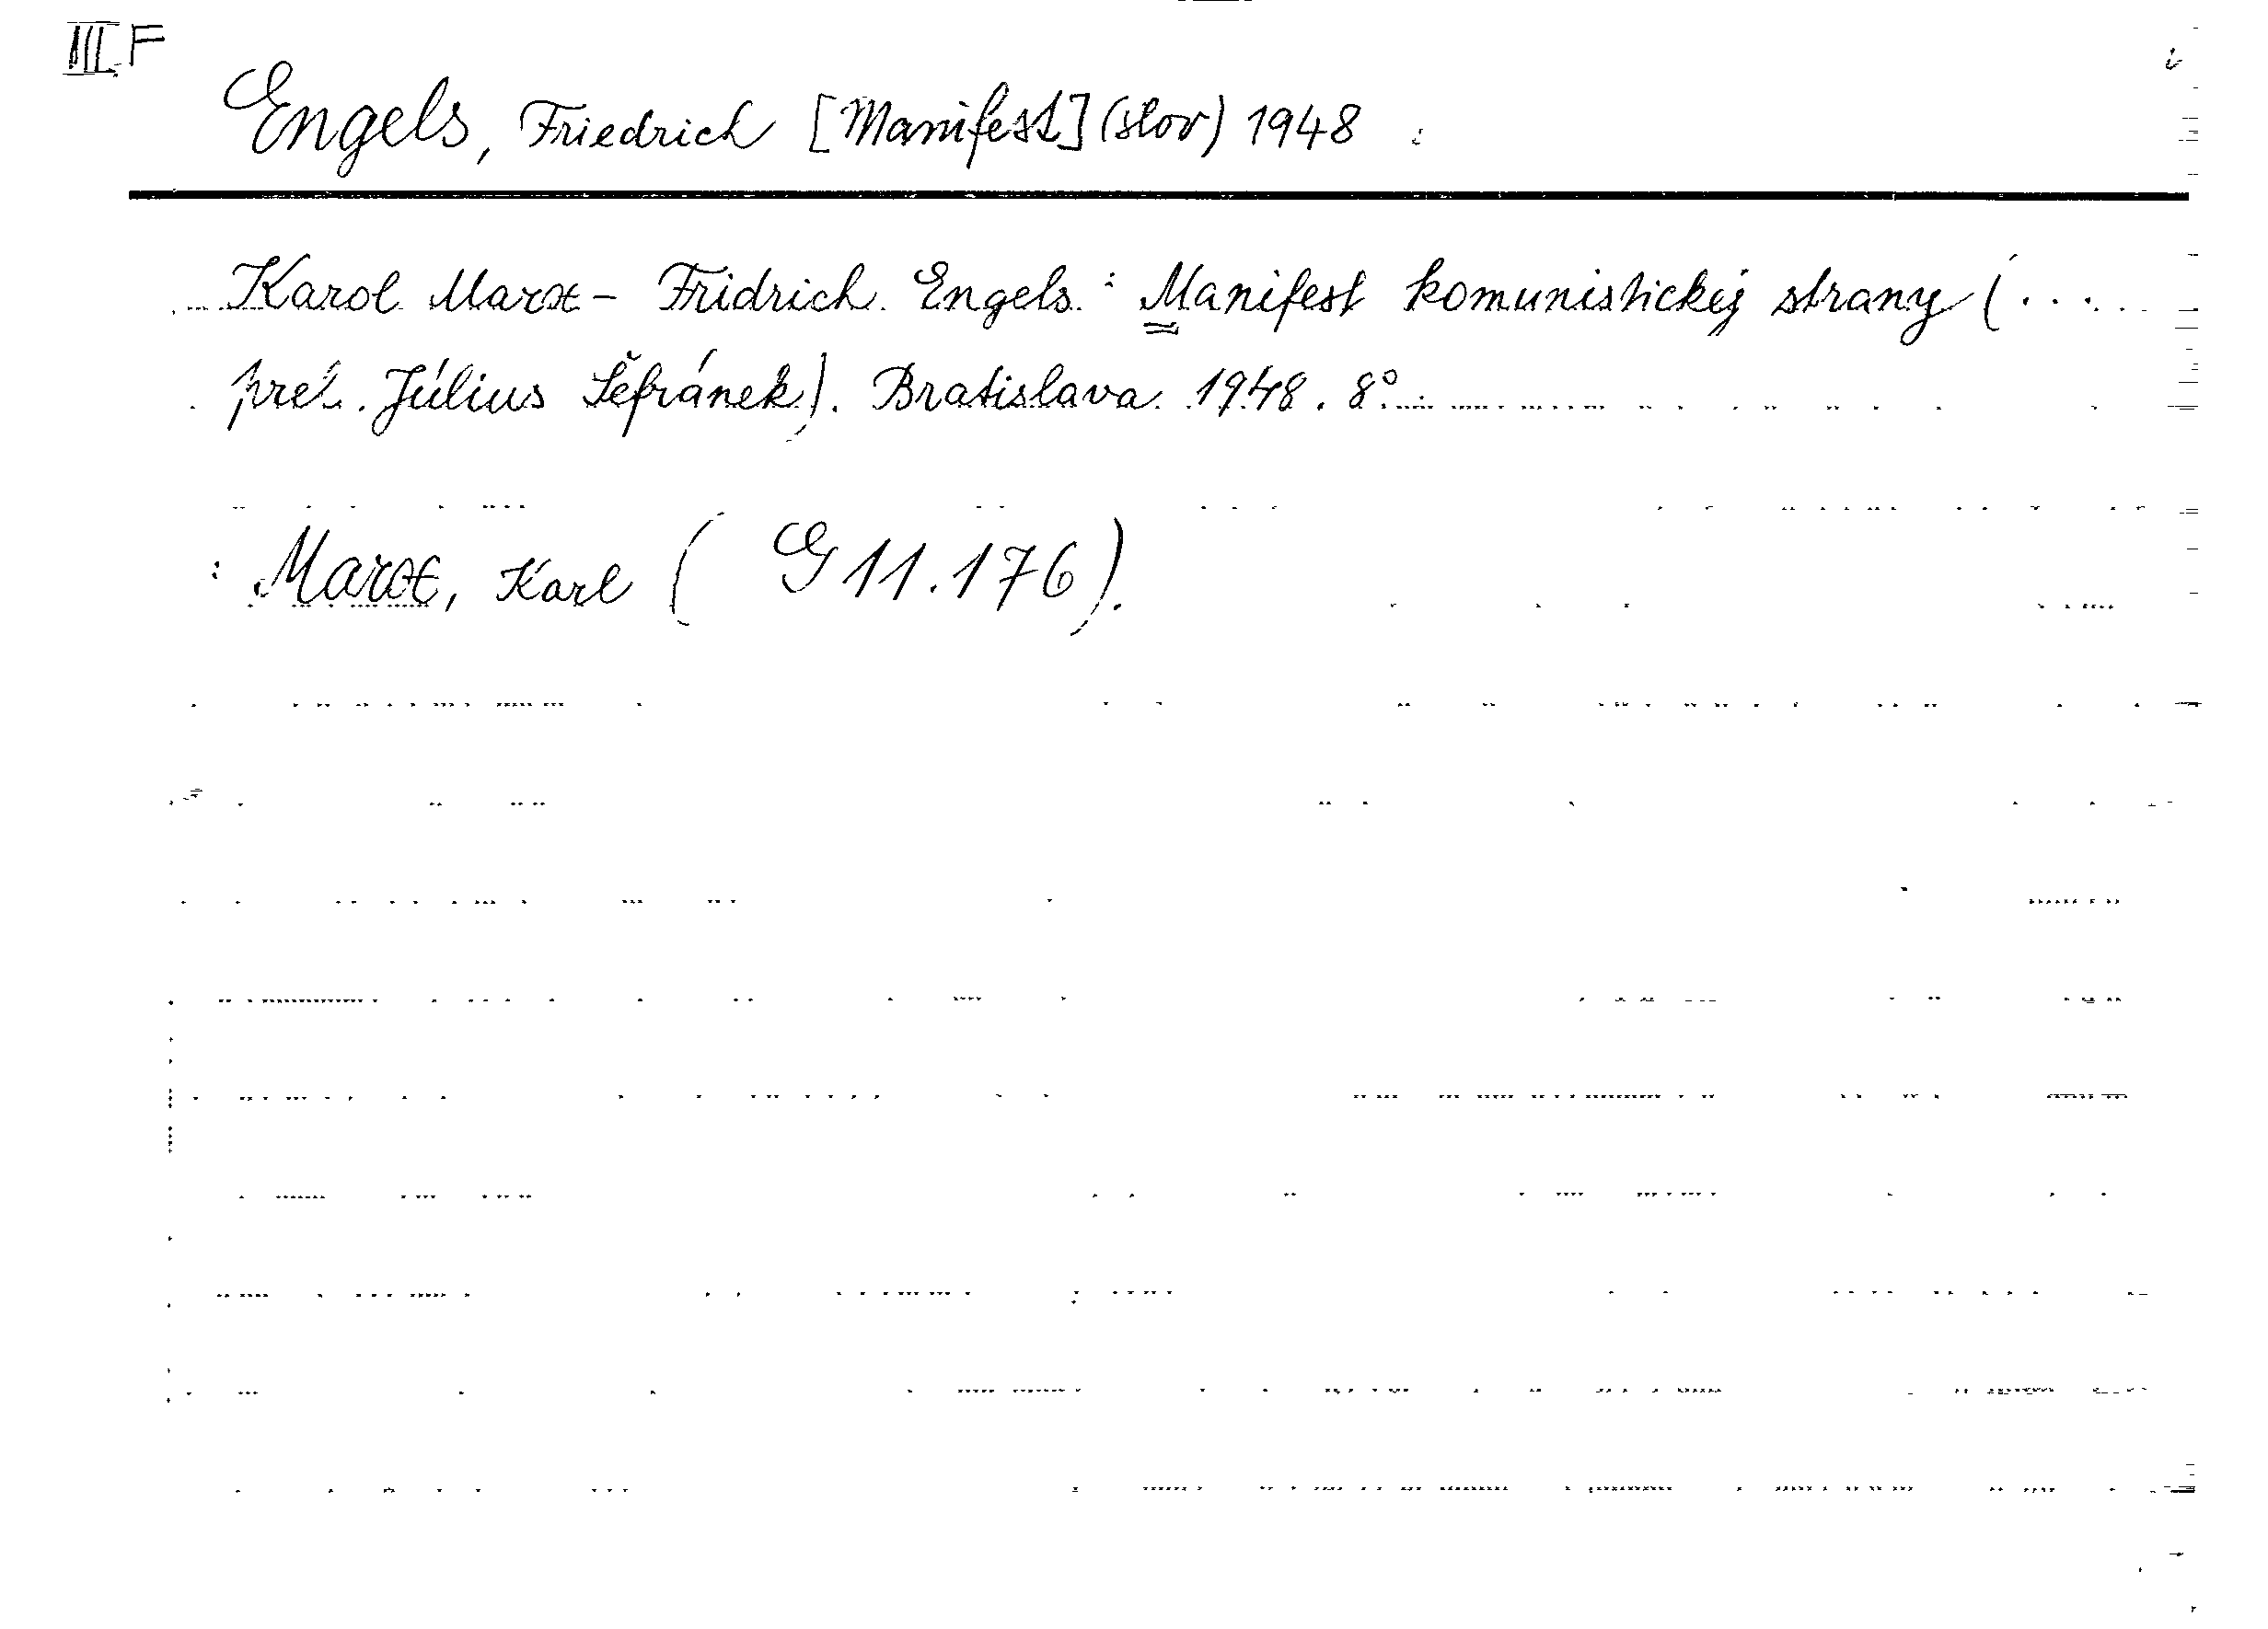 III F
Engels, Friedrich [Manifest] (slov) 1948
Karol Marx - Fridrich Engels: Manifest komunistickej strany (....
prel. Július Šefránek). Bratislava 1948. 8°.
: Marx, Karl ( G 11.176).